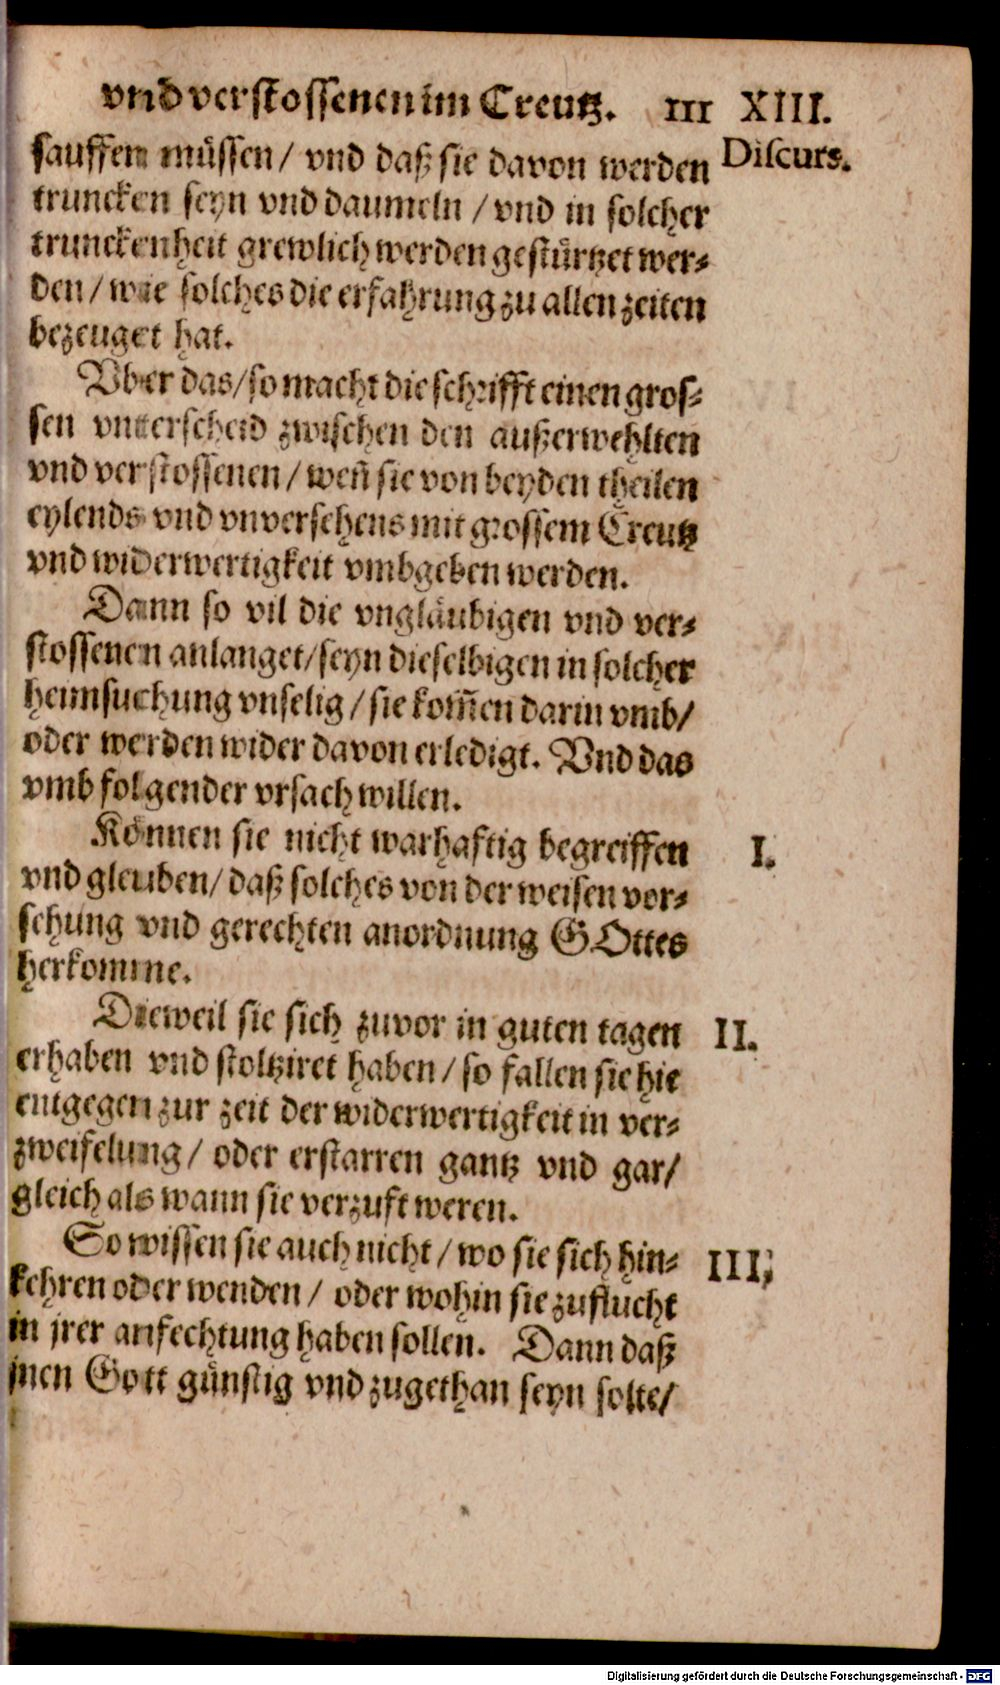 vnd verstossenen im Creutz. 111 XIII.
Discurs.
sauffen müssen / vnd daß sie davon werden
truncken seyn vnd daumeln / vnd in solcher
trunckenheit grewlich werden gestürtzet wer-
den / wie solches die erfahrung zu allen zeiten
bezeuget hat.
Vber das / so macht die schrifft einen gros-
sen vnterscheid zwischen den außerwehlten
vnd verstossenen / weñ sie von beyden theilen
eylends vnd vnversehens mit grossem Creutz
vnd widerwertigkeit vmbgeben werden.
Dann so vil die vngläubigen vnd ver-
stossenen anlanget / seyn dieselbigen in solcher
heimsuchung vnselig / sie kom̃en darin vmb /
oder werden wider davon erledigt. Vnd das
vmb folgender vrsach willen.
Können sie nicht warhaftig begreiffen I.
vnd gleuben / daß solches von der weisen vor-
sehung vnd gerechten anordnung GOttes
herkomme.
Dieweil sie sich zuvor in guten tagen II.
erhaben vnd stoltziret haben / so fallen sie hie
entgegen zur zeit der widerwertigkeit in ver-
zweifelung / oder erstarren gantz vnd gar /
gleich als wann sie verzuft weren.
So wissen sie auch nicht / wo sie sich hin- III.
kehren oder wenden / oder wohin sie zuflucht
in jrer anfechtung haben sollen. Dann daß
jnen Gott günstig vnd zugethan seyn solte /
Digitalisierung gefördert durch die Deutsche Forschungsgemeinschaft - DFG